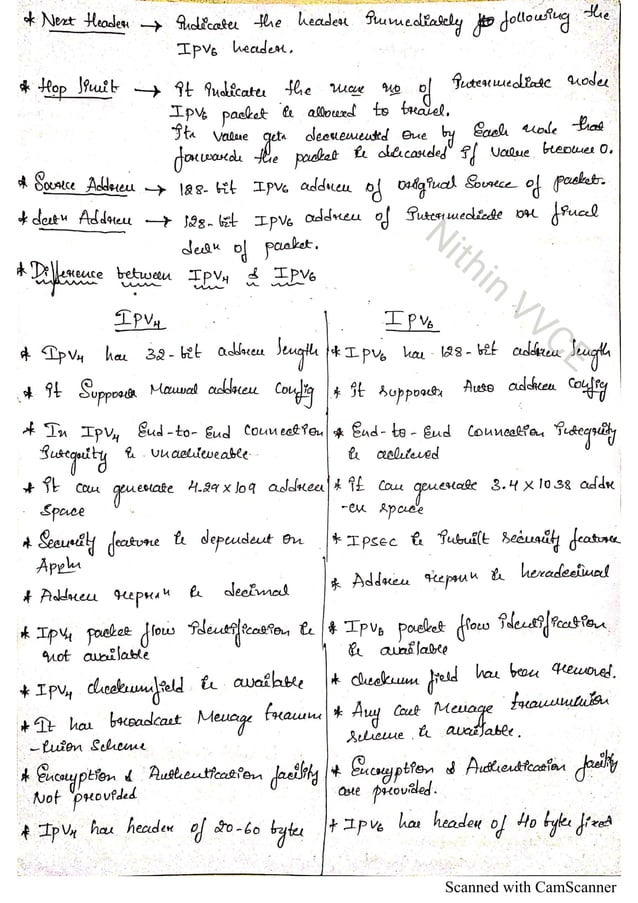 * Next Header → Indicates the header Immediately following the
IPV6 header.
* Hop limit → It Indicates the max no of Intermediate nodes
IPV6 packet is allowed to travel.
Its value gets decremented one by Each node that
forwards the packet is discarded if value becomes 0.
* Source Address → 128-bit IPV6 address of original Source of packet.
* destn Address → 128-bit IPV6 address of Intermediate or final
destn of packet.
* Difference between IPV4 & IPV6
IPV4
* IPV4 has 32-bit address length
* It Supports Manual address Config
* In IPV4 End-to-End Connection
Integrity is unachieveable
* It can generate 4.29 x 109 address
space
* Security feature is dependent on
Appln
* Address reprsn is decimal
* IPV4 packet flow Identification is
not available
* IPV4 checksumfield is available
* It has broadcast Message transm
-ission Scheme
* Encryption & Authentication facility
Not provided
* IPV4 has header of 20-60 bytes
IPV6
* IPV6 has 128-bit address length
* it supports Auto address Config
* End-to-End Connection Integrity
is achieved
* It can generate 3.4 X 10 38 addr
-ess space
* IPSEC is Inbuilt security feature
* Address reprsn is hexadecimal
* IPV6 packet flow identification
is available
* checksum field has been removed.
* Any cast Message transmission
scheme is available.
* Encryption & Authentication facility
are provided.
* IPV6 has header of 40 bytes fixed
Nithin VVCE
Scanned with CamScanner